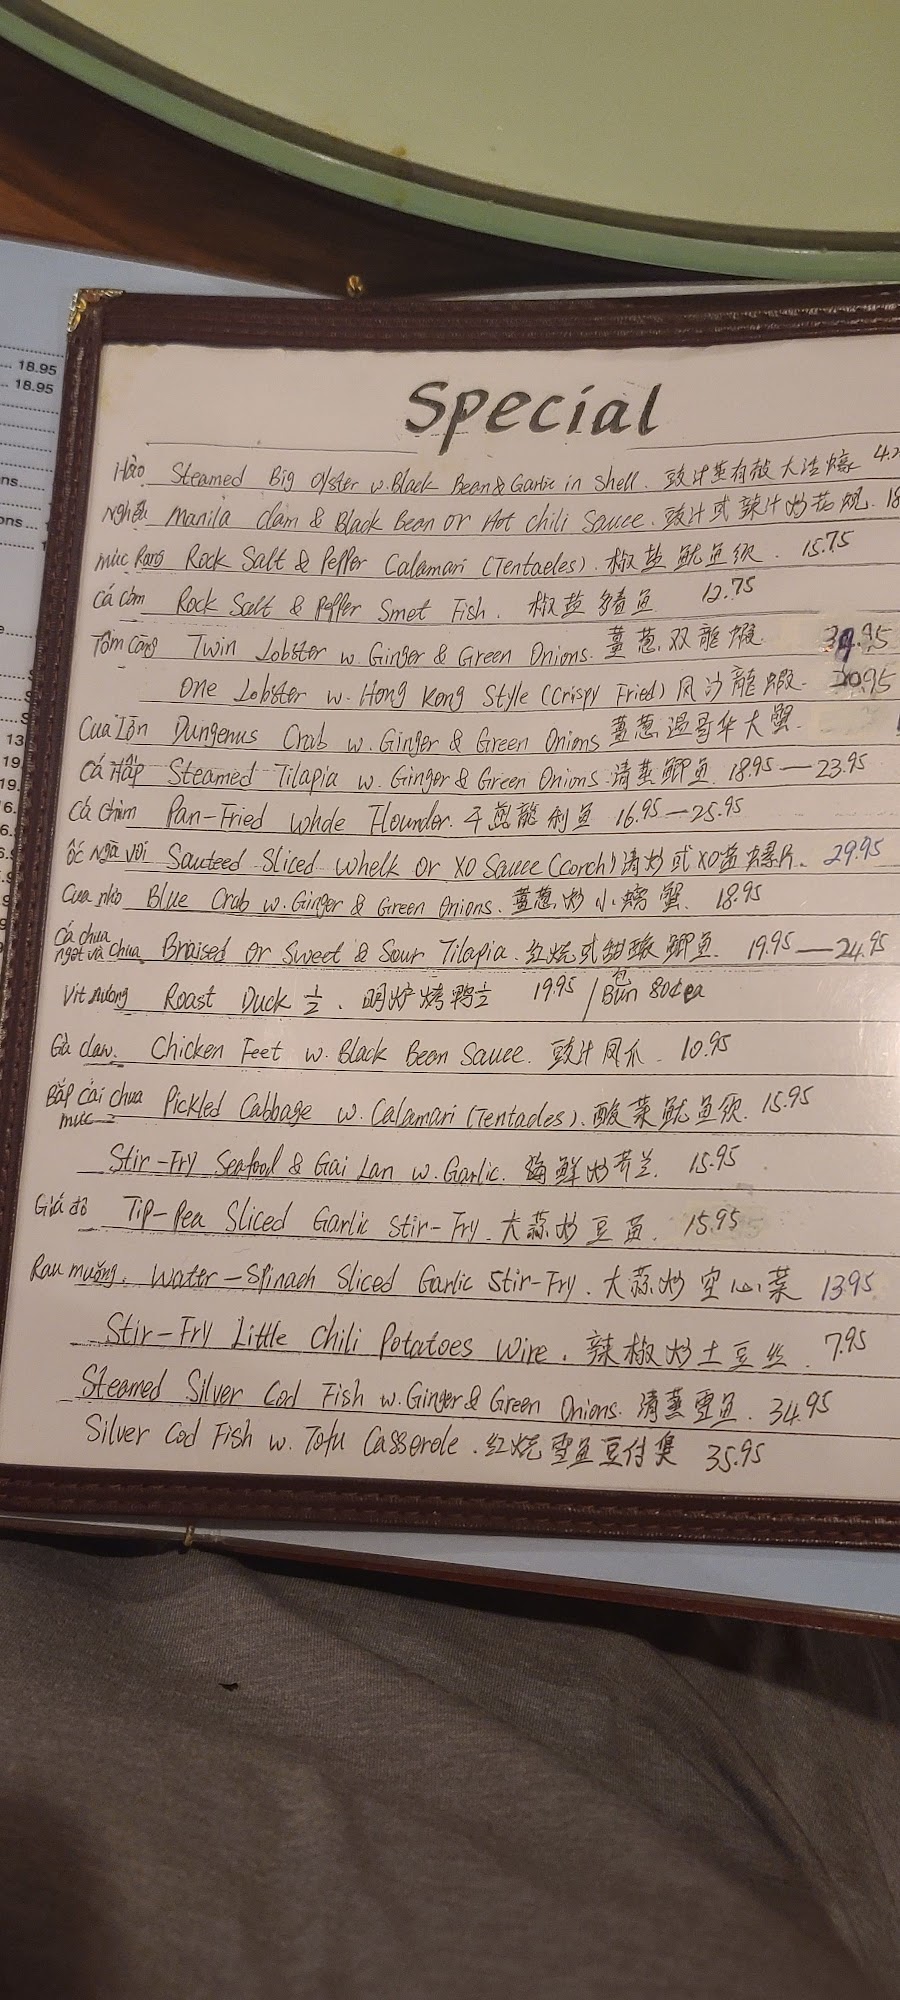 18.95
18.95
Special
Hào Steamed Big Oyster w. Black Bean & Garlic in Shell. 豉汁蒸有殼大活蠔
Nghêu Manila Clam & Black Bean or Hot Chili Sauce. 豉汁或辣汁炒花蜆. 18
mực Rang Rock Salt & Pepper Calamari (Tentacles). 椒盐鱿鱼须. 15.75
Cá Cơm Rock Salt & Pepper Smet Fish. 椒盐鱼 12.75
Tôm Càng Twin Lobster w. Ginger & Green Onions. 薑葱双龍蝦 34.95
One Lobster w. Hong Kong Style (Crispy Fried) 风沙龍蝦. 20.95
Cua Lớn Dungenus Crab w. Ginger & Green Onions 薑葱温哥华大蟹.
Cá Hấp Steamed Tilapia w. Ginger & Green Onions. 清蒸鲫鱼 18.95—23.95
Cá Chim Pan-Fried Whole Flounder. 干煎龍利鱼 16.95—25.95
ốc Ngà Vòi Sauteed Sliced Whelk or XO Sauce (Corch) 清炒或XO酱螺片. 29.95
Cua nhỏ Blue Crab w. Ginger & Green Onions. 薑葱炒小螃蟹. 18.95
Cá chua ngọt và chua Braised or Sweet & Sour Tilapia. 红烧或甜酸鲫鱼. 19.95—24.95
Vịt nướng Roast Duck ½. 明炉烤鸭½ 19.95 / 包 Bun 80¢ea
Gà claw. Chicken Feet w. Black Bean Sauce. 豉汁凤爪. 10.95
Bắp cải chua mực Pickled Cabbage w. Calamari (Tentacles). 酸菜鱿鱼须. 15.95
Stir-Fry Seafood & Gai Lan w. Garlic. 海鲜炒芥兰. 15.95
Giá đỏ Tip-Pea Sliced Garlic Stir-Fry. 大蒜炒豆苗. 15.95
Rau muống. Water-Spinach Sliced Garlic Stir-Fry. 大蒜炒空心菜 13.95
Stir-Fry Little Chili Potatoes Wire. 辣椒炒土豆丝. 7.95
Steamed Silver Cod Fish w. Ginger & Green Onions. 清蒸雪鱼. 34.95
Silver Cod Fish w. Tofu Casserole. 红烧雪鱼豆付煲 35.95